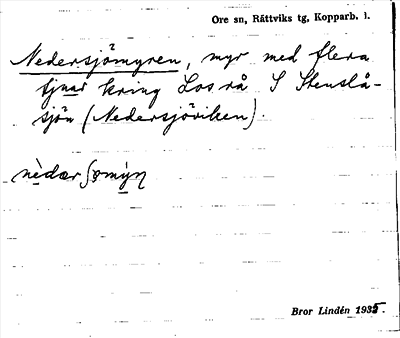 Ore sn, Rättviks tg, Kopparb. l.
Nedersjömyren, myr med flera
tjnar kring Losrå S Stenslå-
sjön (Nedersjöviken).
nèdærʃomýn
Bror Lindén 1935.